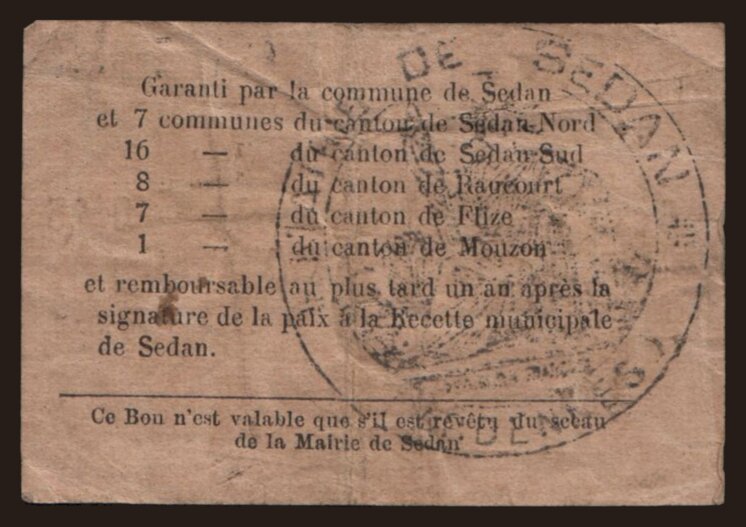 Garanti par la commune de Sedan
et 7 communes du canton de Sedan-Nord
16 — du canton de Sedan-Sud
8 — du canton de Raucourt
7 — du canton de Flize
1 — du canton de Mouzon
et remboursable au plus tard un an après la
signature de la paix à la Recette municipale
de Sedan.
Ce Bon n'est valable que s'il est revêtu du sceau
de la Mairie de Sedan
DE SEDAN